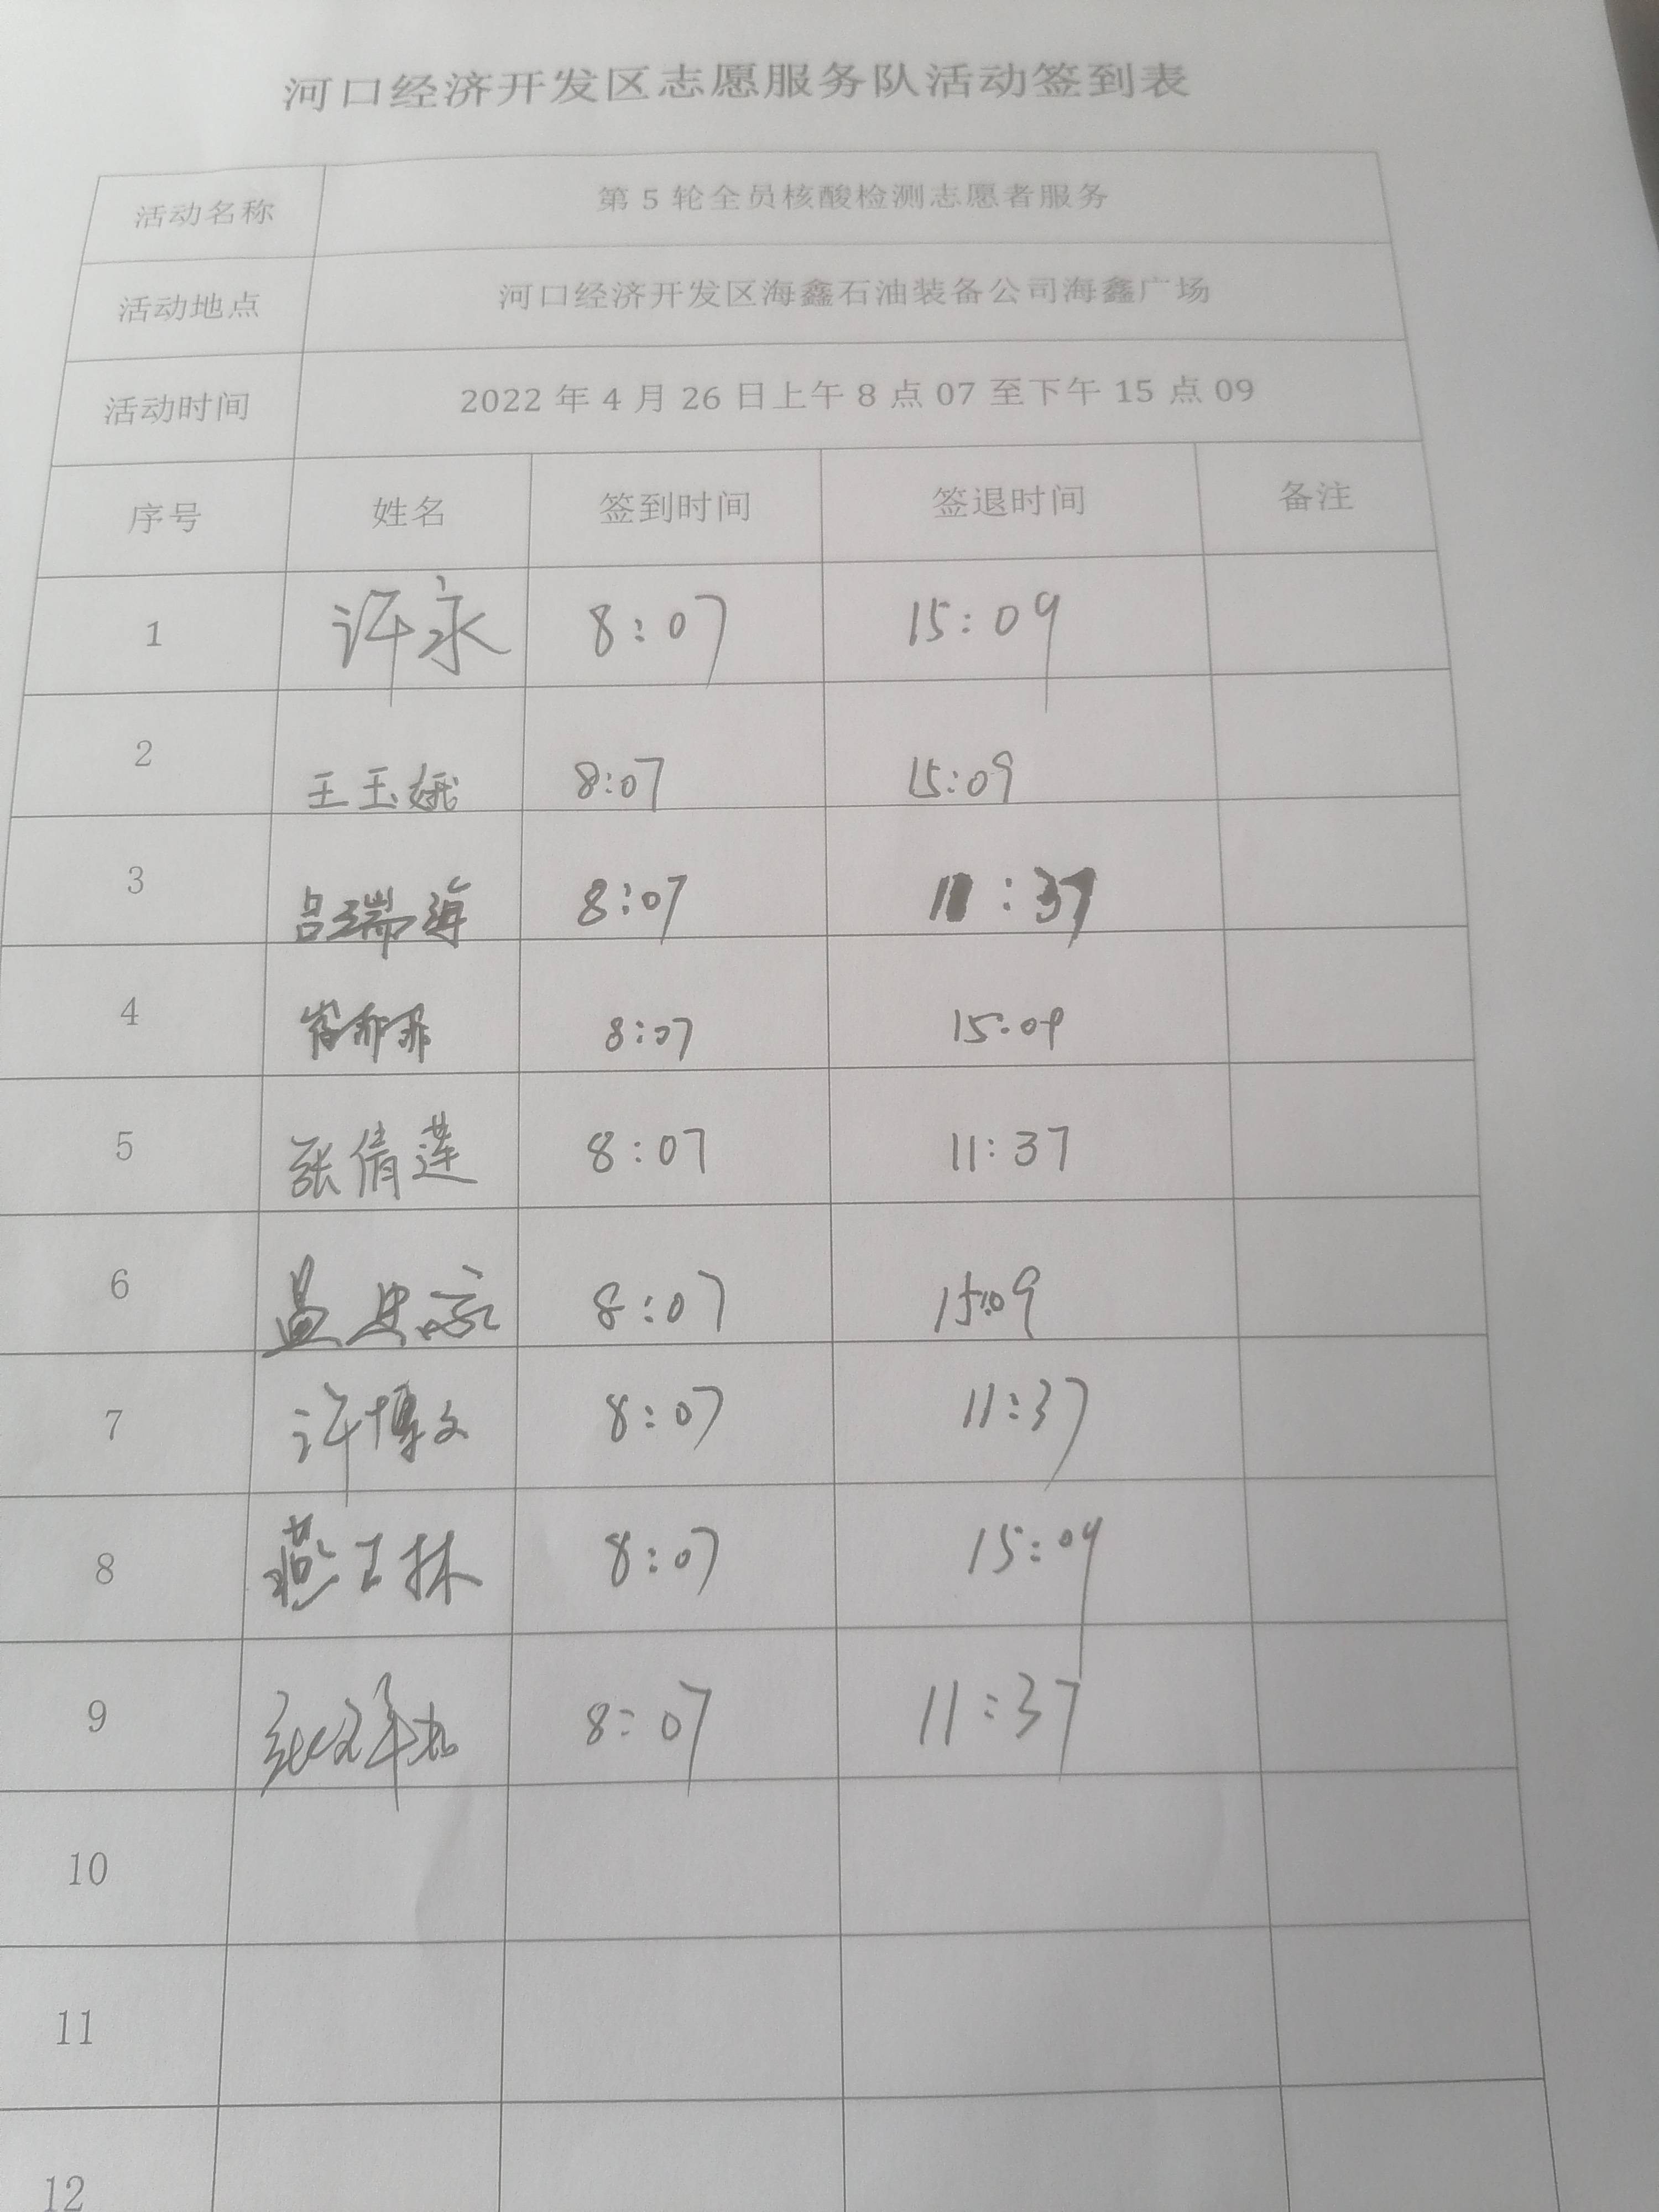 河口经济开发区志愿服务队活动签到表
活动名称 第 5 轮全员核酸检测志愿者服务
活动地点 河口经济开发区海鑫石油装备公司海鑫广场
活动时间 2022 年 4 月 26 日上午 8 点 07 至下午 15 点 09
序号 姓名 签到时间 签退时间 备注
1 许永 8:07 15:09
2 王玉娥 8:07 15:09
3 吕瑞海 8:07 11:37
4 8:07 15:09
5 张倩莲 8:07 11:37
6 8:07 15:09
7 许博文 8:07 11:37
8 燕玉林 8:07 15:09
9 8:07 11:37
10
11
12